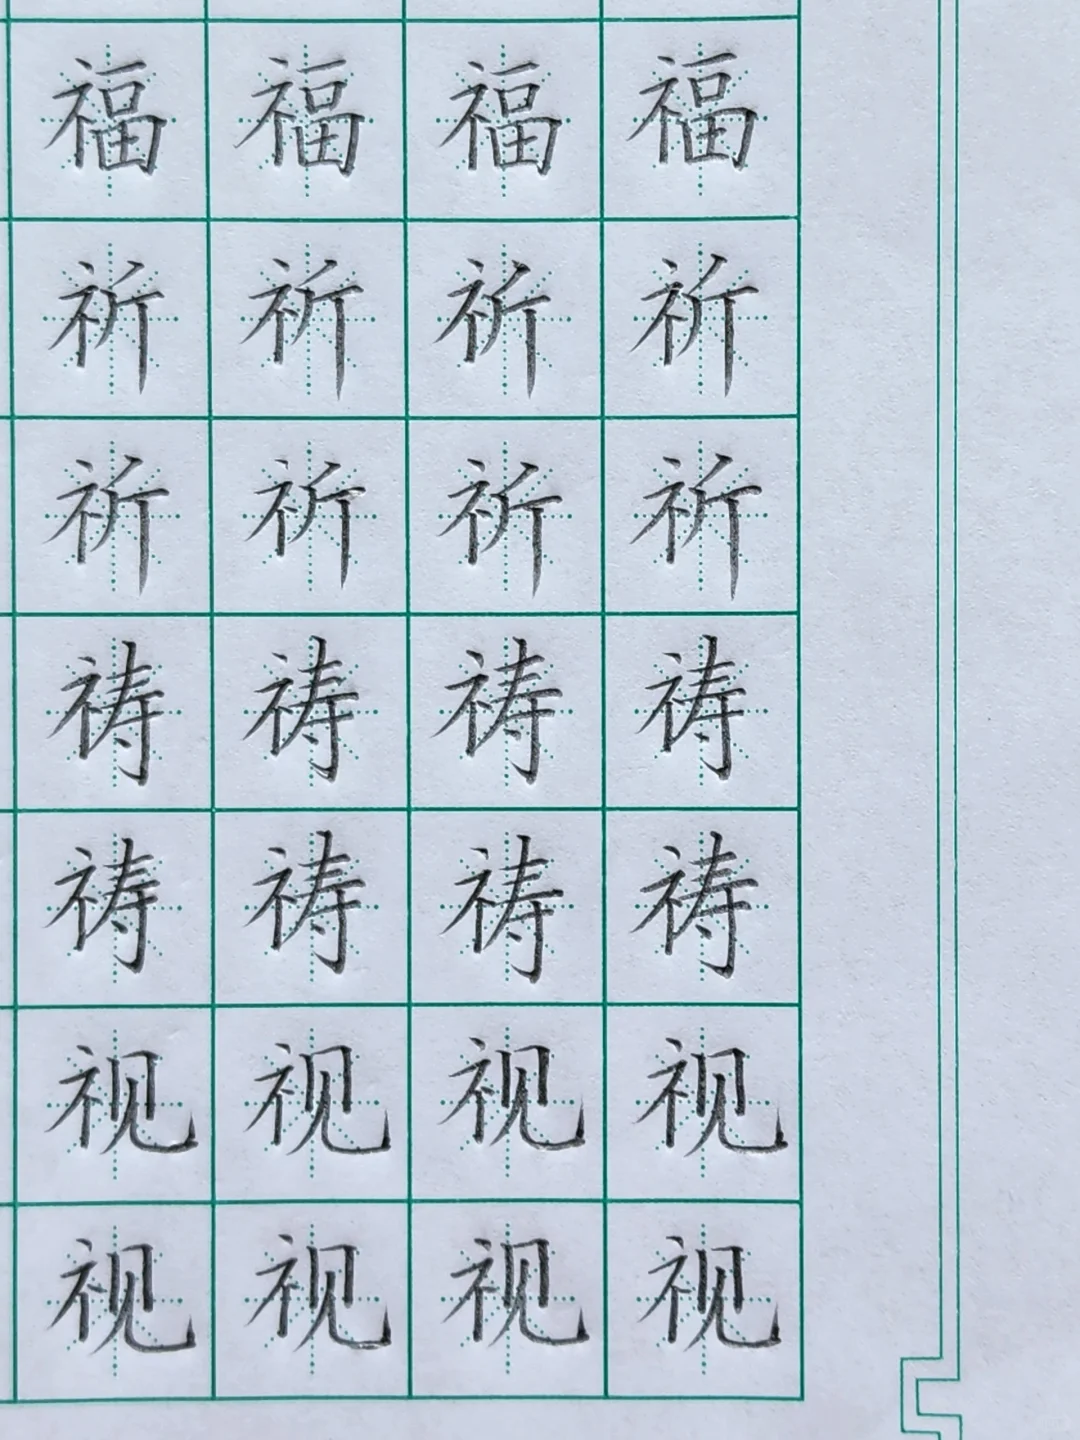 福福福福
祈祈祈祈
祈祈祈祈
祷祷祷祷
祷祷祷祷
视视视视
视视视视